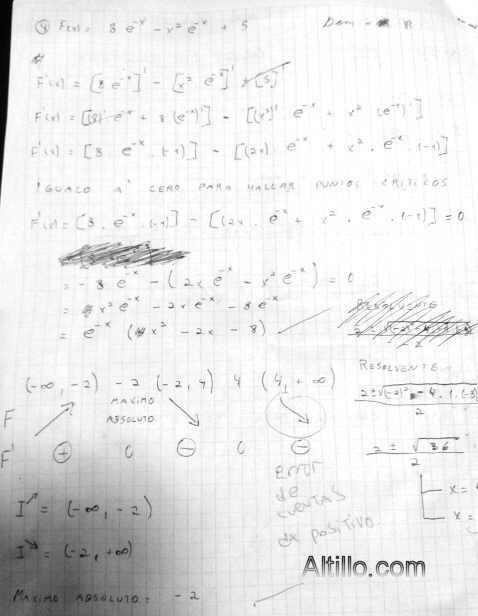 ④ F(x) = 8 e^-x - x² e^-x + 5 Dom = R
F'(x) = [8 e^-x]' - [x² e^-x]' + [5]'
F'(x) = [(8)' e^-x + 8 (e^-x)'] - [(x²)' e^-x + x² (e^-x)']
F'(x) = [8 . e^-x . (-1)] - [(2x) . e^-x + x² . e^-x . (-1)]
IGUALO A CERO PARA HALLAR PUNTOS CRITICOS
F'(x) = [8 . e^-x . (-1)] - [(2x . e^-x + x² . e^-x . (-1)] = 0
= - 8 e^-x - (2x e^-x - x² e^-x) = 0
= x² e^-x - 2x e^-x - 8 e^-x
= e^-x (x² - 2x - 8)
RESOLVENTE
RESOLVENTE
2 ± √(-2)² - 4 . 1 . (-8)
2
2 ± √36
2
x =
x =
(-∞, -2) -2 (-2, 4) 4 (4, +∞)
MAXIMO
ABSOLUTO
F
F' + 0 - 0 -
Error
de
cuentas
da positivo
I↗ = (-∞, -2)
I↘ = (-2, +∞)
MAXIMO ABSOLUTO = -2
Altillo.com